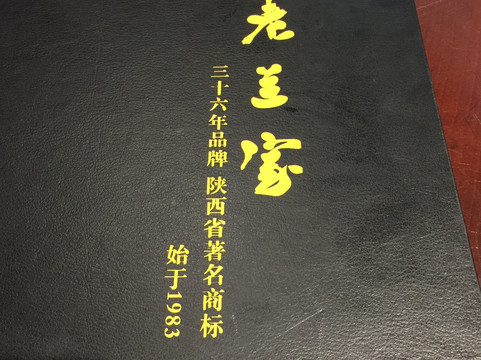 老兰家
三十六年品牌 陕西省著名商标
始于1983